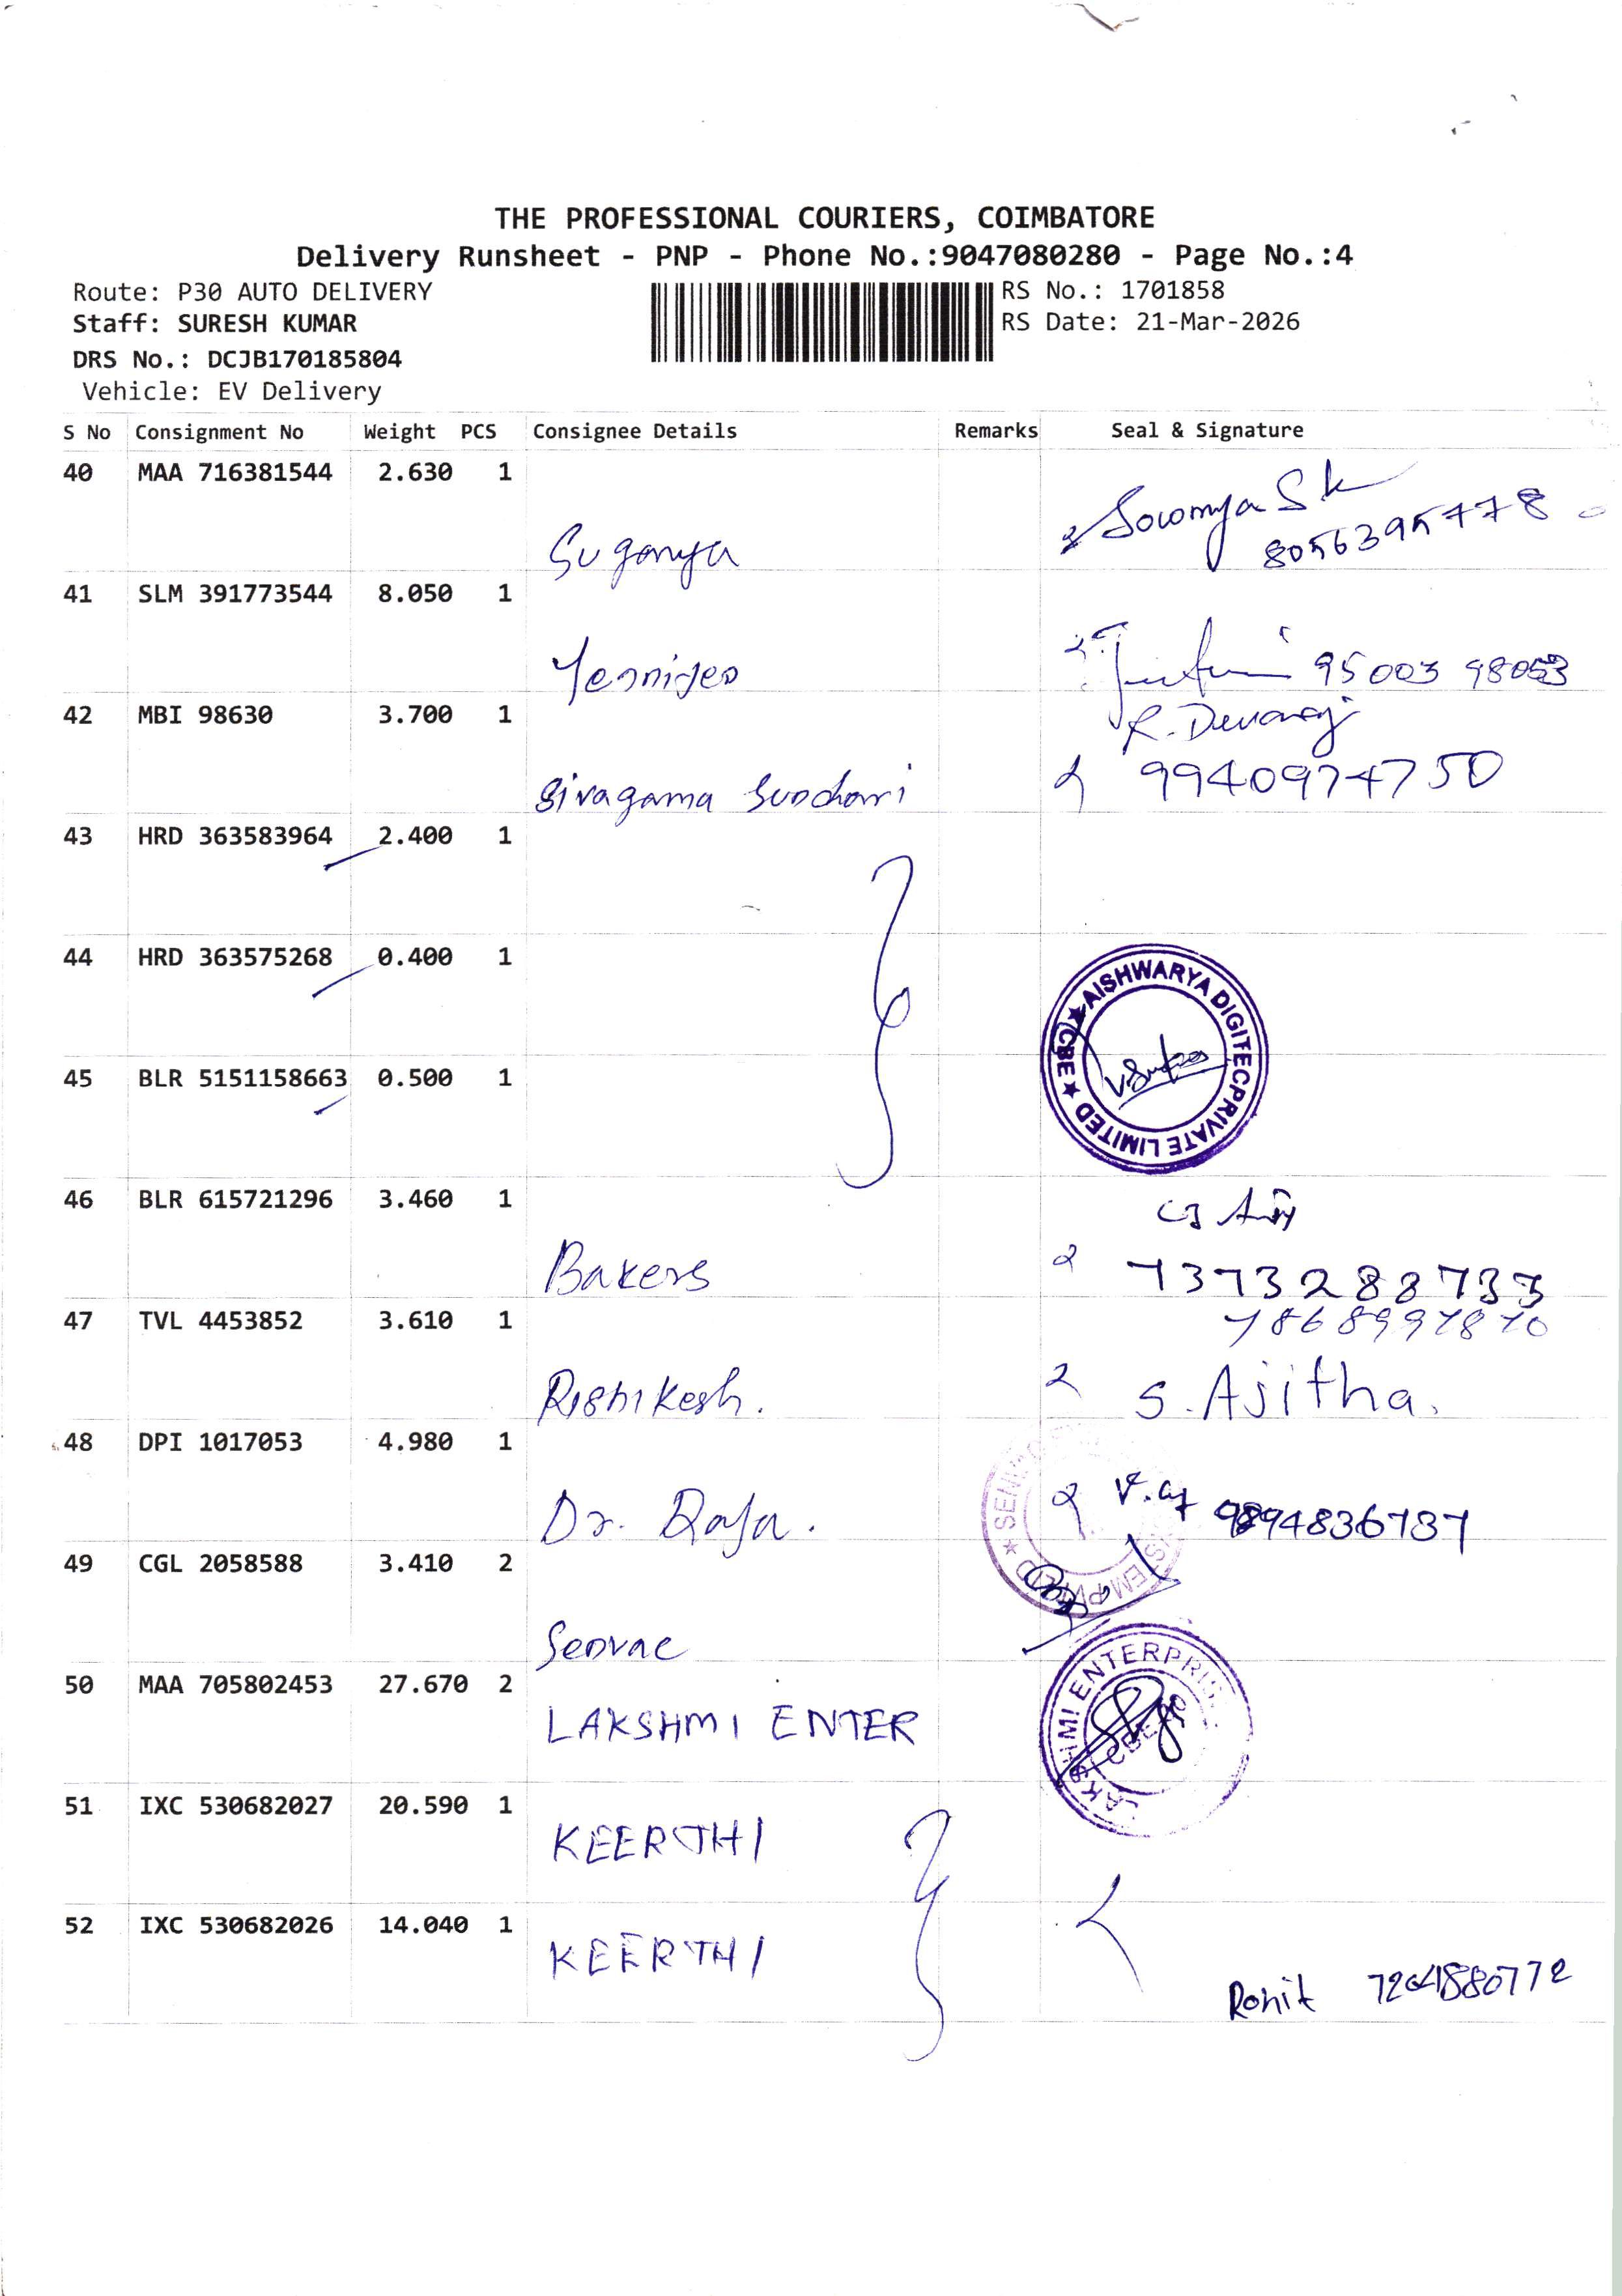 THE PROFESSIONAL COURIERS, COIMBATORE
Delivery Runsheet - PNP - Phone No.:9047080280 - Page No.:4
Route: P30 AUTO DELIVERY
RS No.: 1701858
Staff: SURESH KUMAR
RS Date: 21-Mar-2026
DRS No.: DCJB170185804
Vehicle: EV Delivery
S No Consignment No Weight PCS Consignee Details Remarks Seal & Signature
40 MAA 716381544 2.630 1
Sowmya S k
8056395778
Suganya
41 SLM 391773544 8.050 1
95003 98053
42 MBI 98630 3.700 1
R. Devaraj
Sivagama Sundari 9940974750
43 HRD 363583964 2.400 1
44 HRD 363575268 0.400 1
AISHWARYA DIGITECPRIVATE LIMITED ★ CBE ★
45 BLR 5151158663 0.500 1
46 BLR 615721296 3.460 1
Bakers 7373288733
47 TVL 4453852 3.610 1
7868997870
Rishikesh. S. Ajitha.
48 DPI 1017053 4.980 1
Dr. Raja. 9894836737
49 CGL 2058588 3.410 2
Senvac
50 MAA 705802453 27.670 2
LAKSHMI ENTER
LAKSHMI ENTERPRIS
51 IXC 530682027 20.590 1
KEERTHI
52 IXC 530682026 14.040 1
KEERTHI
Rohit